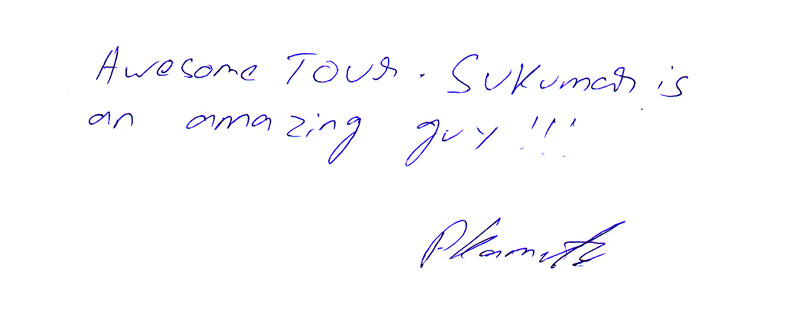 Awesome Tour. Sukumar is
an amazing guy!!!